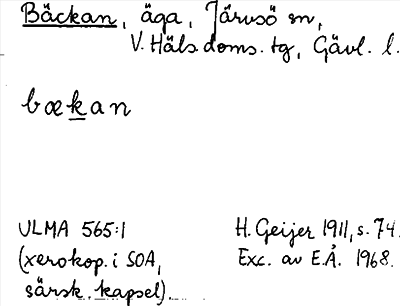 Bäckan, äga, Järvsö sn,
V. Häls. doms. tg, Gävl. l.
bækan
ULMA 565:1
(xerokop. i SOA,
särsk. kapsel).
H. Geijer 1911, s. 74.
Exc. av E.Å. 1968.